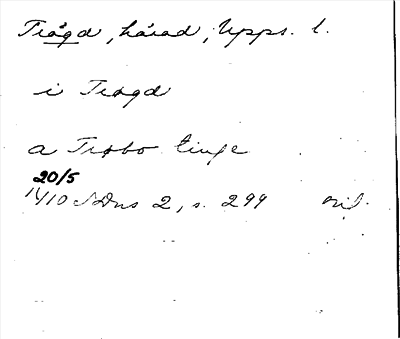 Trögd, härad, Upps. l.
i Trøgd
a Trøbo tinge
20/5
1410 SDns 2, s. 299 orig.